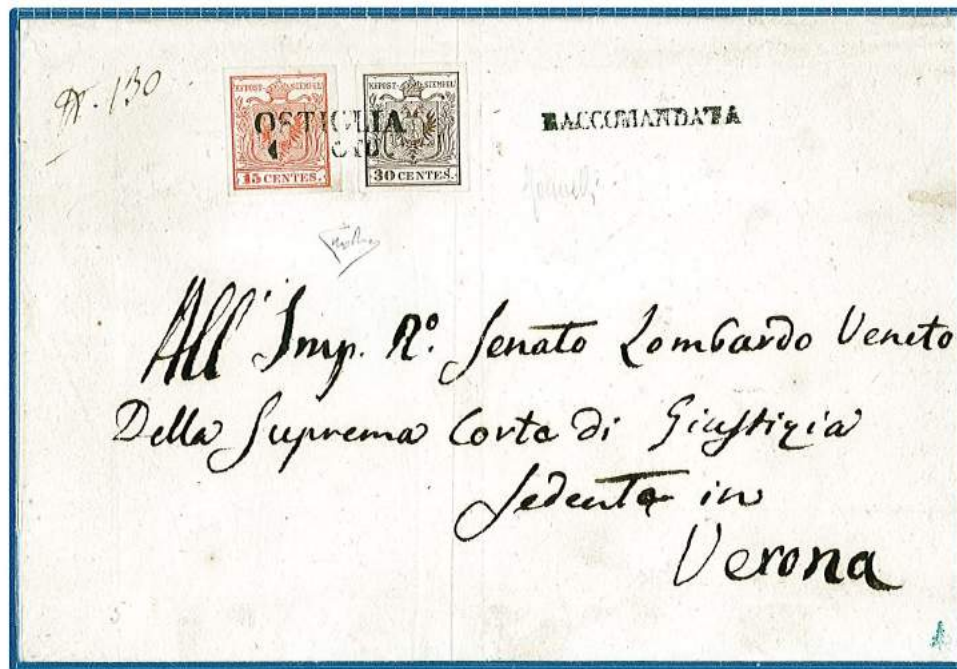 N. 130
KKPOST-STEMPEL KKPOST-STEMPEL
OSTIGLIA
4 OTD.
15 CENTES. 30 CENTES.
RACCOMANDATA
All' Imp. R.º Senato Lombardo Veneto
Della Suprema Corte di Giustizia
Sedente in
Verona